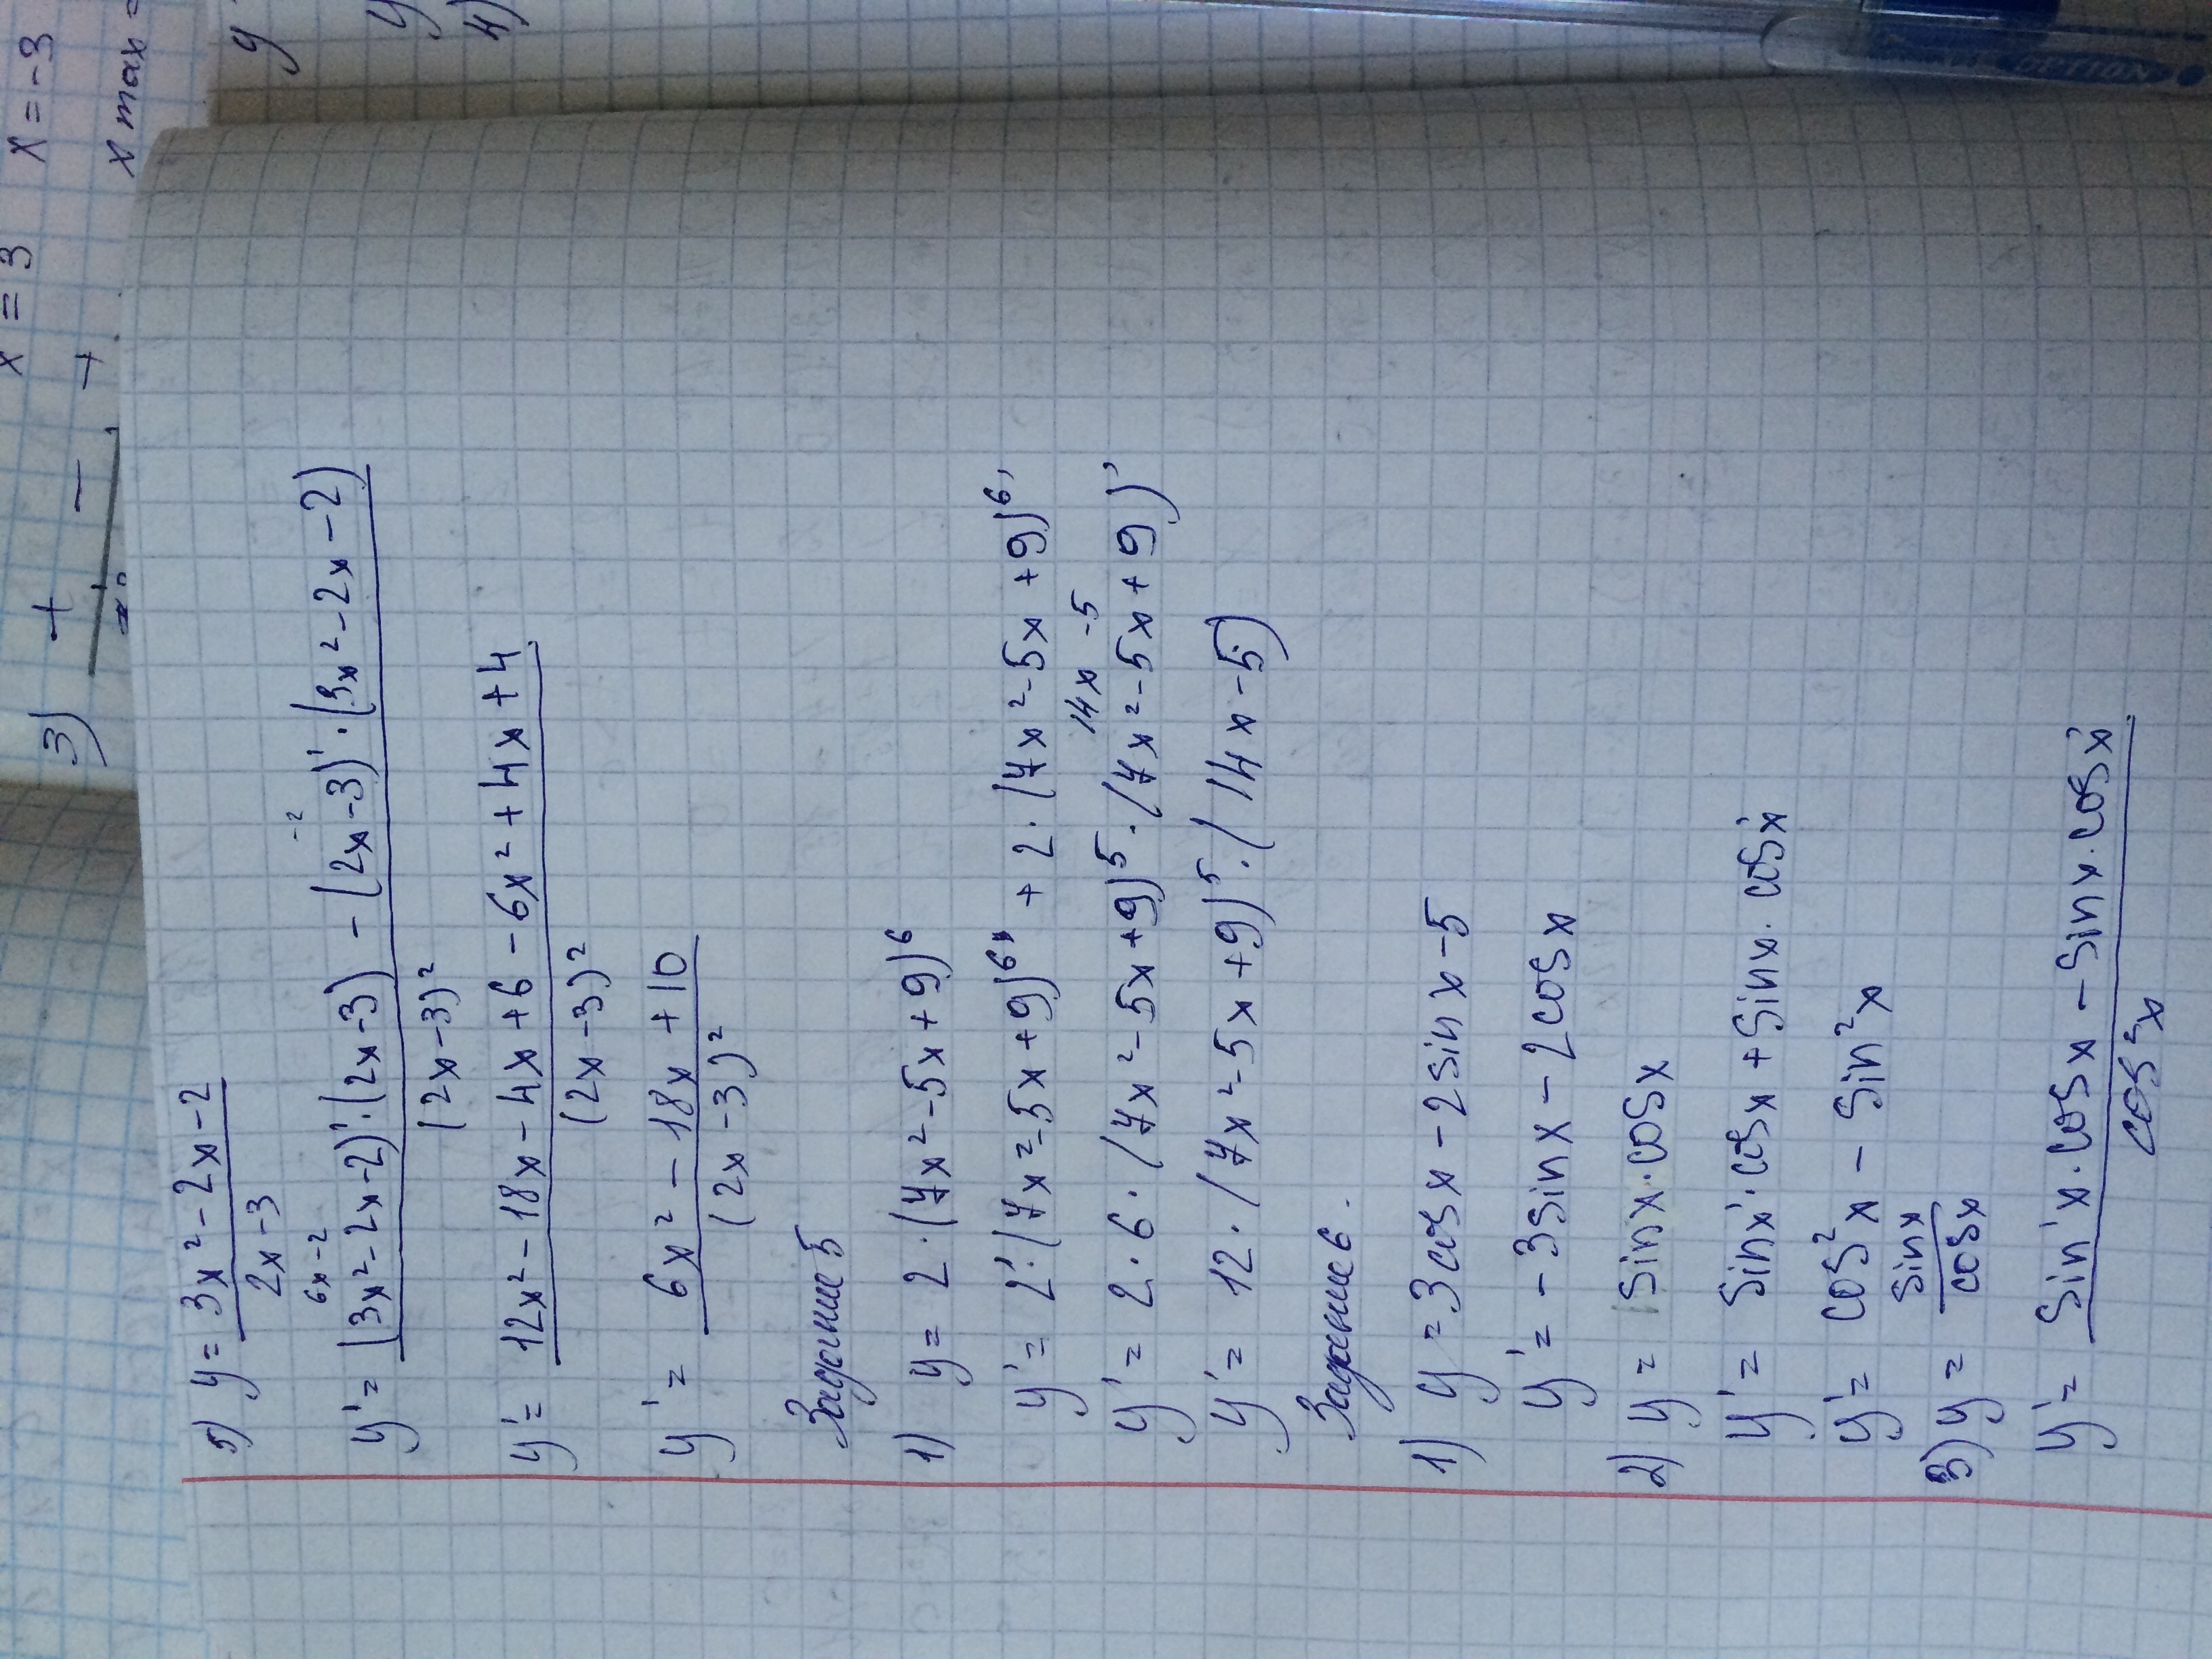 x = 3 x = -3
x max =
3) + - +
y
y
4)
OPTION
5) y = (3x² - 2x - 2)/(2x - 3)
6x - 2 -2
y' = ((3x² - 2x - 2)' · (2x - 3) - (2x - 3)' · (3x² - 2x - 2))/(2x - 3)²
y' = (12x² - 18x - 4x + 6 - 6x² + 4x + 4)/(2x - 3)²
y' = (6x² - 18x + 10)/(2x - 3)²
Задание 5
1) y = 2 · (7x² - 5x + 9)⁶
y' = 2' · (7x² - 5x + 9)⁶ + 2 · (7x² - 5x + 9)⁶'
14x -5
y' = 2 · 6 · (7x² - 5x + 9)⁵ · (7x² - 5x + 9)'
y' = 12 · (7x² - 5x + 9)⁵ · (14x - 5)
Задание 6.
1) y = 3cosx - 2sinx - 5
y' = -3sinx - 2cosx
2) y = sinx · cosx
y' = sinx' · cosx + sinx · cosx'
y' = cos²x - sin²x
3) y = sinx/cosx
y' = (sin'x · cosx - sinx · cosx')/cos²x